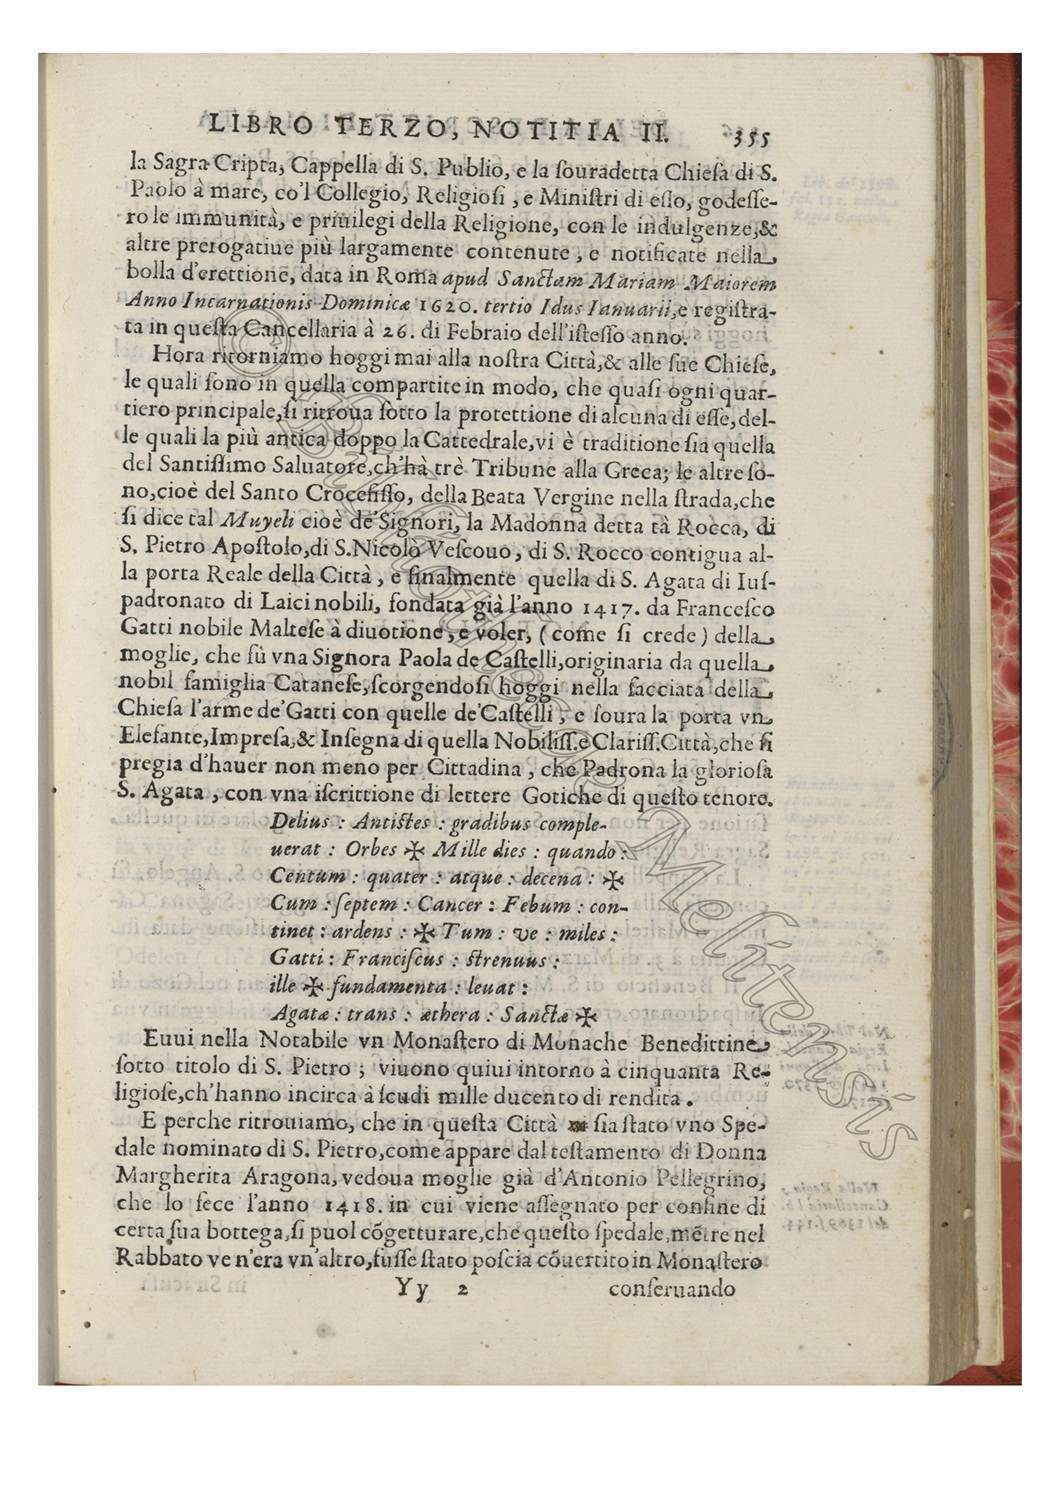 LIBRO TERZO, NOTITIA II. 355
la Sagra Cripta, Cappella di S. Publio, e la ſouradetta Chieſa di S.
Paolo à mare, co'l Collegio, Religioſi, e Miniſtri di eſſo, godeſſe-
ro le immunità, e priuilegi della Religione, con le indulgenze,&
altre prerogatiue più largamente contenute, e notificate nella
bolla d'erettione, data in Roma apud Sanctam Mariam Maiorem
Anno Incarnationis Dominicæ 1620. tertio Idus Ianuarii, e regiſtra-
ta in queſta Cancellaria à 26. di Febraio dell'iſteſſo anno.
Hora ritorniamo hoggi mai alla noſtra Città,& alle ſue Chieſe,
le quali ſono in quella compartite in modo, che quaſi ogni quar-
tiero principale,ſi ritroua ſotto la protettione di alcuna di eſſe, del-
le quali la più antica doppo la Cattedrale,vi è traditione ſia quella
del Santiſſimo Saluatore,ch'hà trè Tribune alla Greca; le altre ſo-
no,cioè del Santo Crocefiſſo, della Beata Vergine nella ſtrada,che
ſi dice tal Muyeli cioè de' Signori, la Madonna detta tà Rocca, di
S. Pietro Apoſtolo,di S.Nicolò Veſcouo, di S. Rocco contigua al-
la porta Reale della Città, e finalmente quella di S. Agata di Iuſ-
padronato di Laici nobili, fondata già l'anno 1417. da Franceſco
Gatti nobile Malteſe à diuotione, e voler, (come ſi crede) della
moglie, che fù vna Signora Paola de Caſtelli,originaria da quella
nobil famiglia Cataneſe,ſcorgendoſi hoggi nella facciata della
Chieſa l'arme de'Gatti con quelle de'Caſtelli, e ſoura la porta vn
Elefante,Impreſa,& Inſegna di quella Nobiliſſ.e Clariſſ.Città,che ſi
pregia d'hauer non meno per Cittadina, che Padrona la glorioſa
S. Agata, con vna iſcrittione di lettere Gotiche di queſto tenore.
Delius : Antiſtes : gradibus comple-
uerat : Orbes ✠ Mille dies : quando :
Centum : quater : atque : decena : ✠
Cum : ſeptem : Cancer : Febum : con-
tinet : ardens : ✠ Tum : ve : miles :
Gatti : Franciſcus : ſtrenuus :
ille ✠ fundamenta : leuat :
Agatæ : trans : æthera : Sanctæ ✠
Euui nella Notabile vn Monaſtero di Monache Benedittine
ſotto titolo di S. Pietro ; viuono quiui intorno à cinquanta Re-
ligioſe,ch'hanno incirca à ſcudi mille ducento di rendita.
E perche ritrouiamo, che in queſta Città ſia ſtato vno Spe-
dale nominato di S. Pietro,come appare dal teſtamento di Donna
Margherita Aragona, vedoua moglie già d'Antonio Pellegrino,
che lo fece l'anno 1418. in cui viene aſſegnato per confine di
certa ſua bottega,ſi puol cõgetturare,che queſto ſpedale,mẽtre nel
Rabbato ve n'era vn'altro,fuſſe ſtato poſcia cõuertito in Monaſtero
Yy 2 conſeruando
© Bibliotheca Melitensis